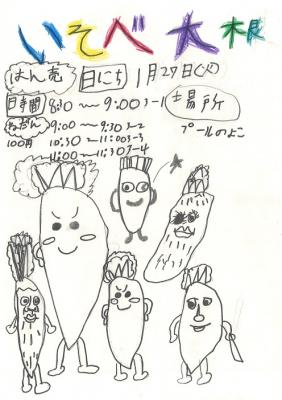 いそべ大根
はん売 日にち 1月27日(火)
時間 8:30〜9:00 3-1 場所
ねだん 9:00〜9:30 3-2 プールのよこ
100円 10:30〜11:00 3-3
11:00〜11:30 3-4